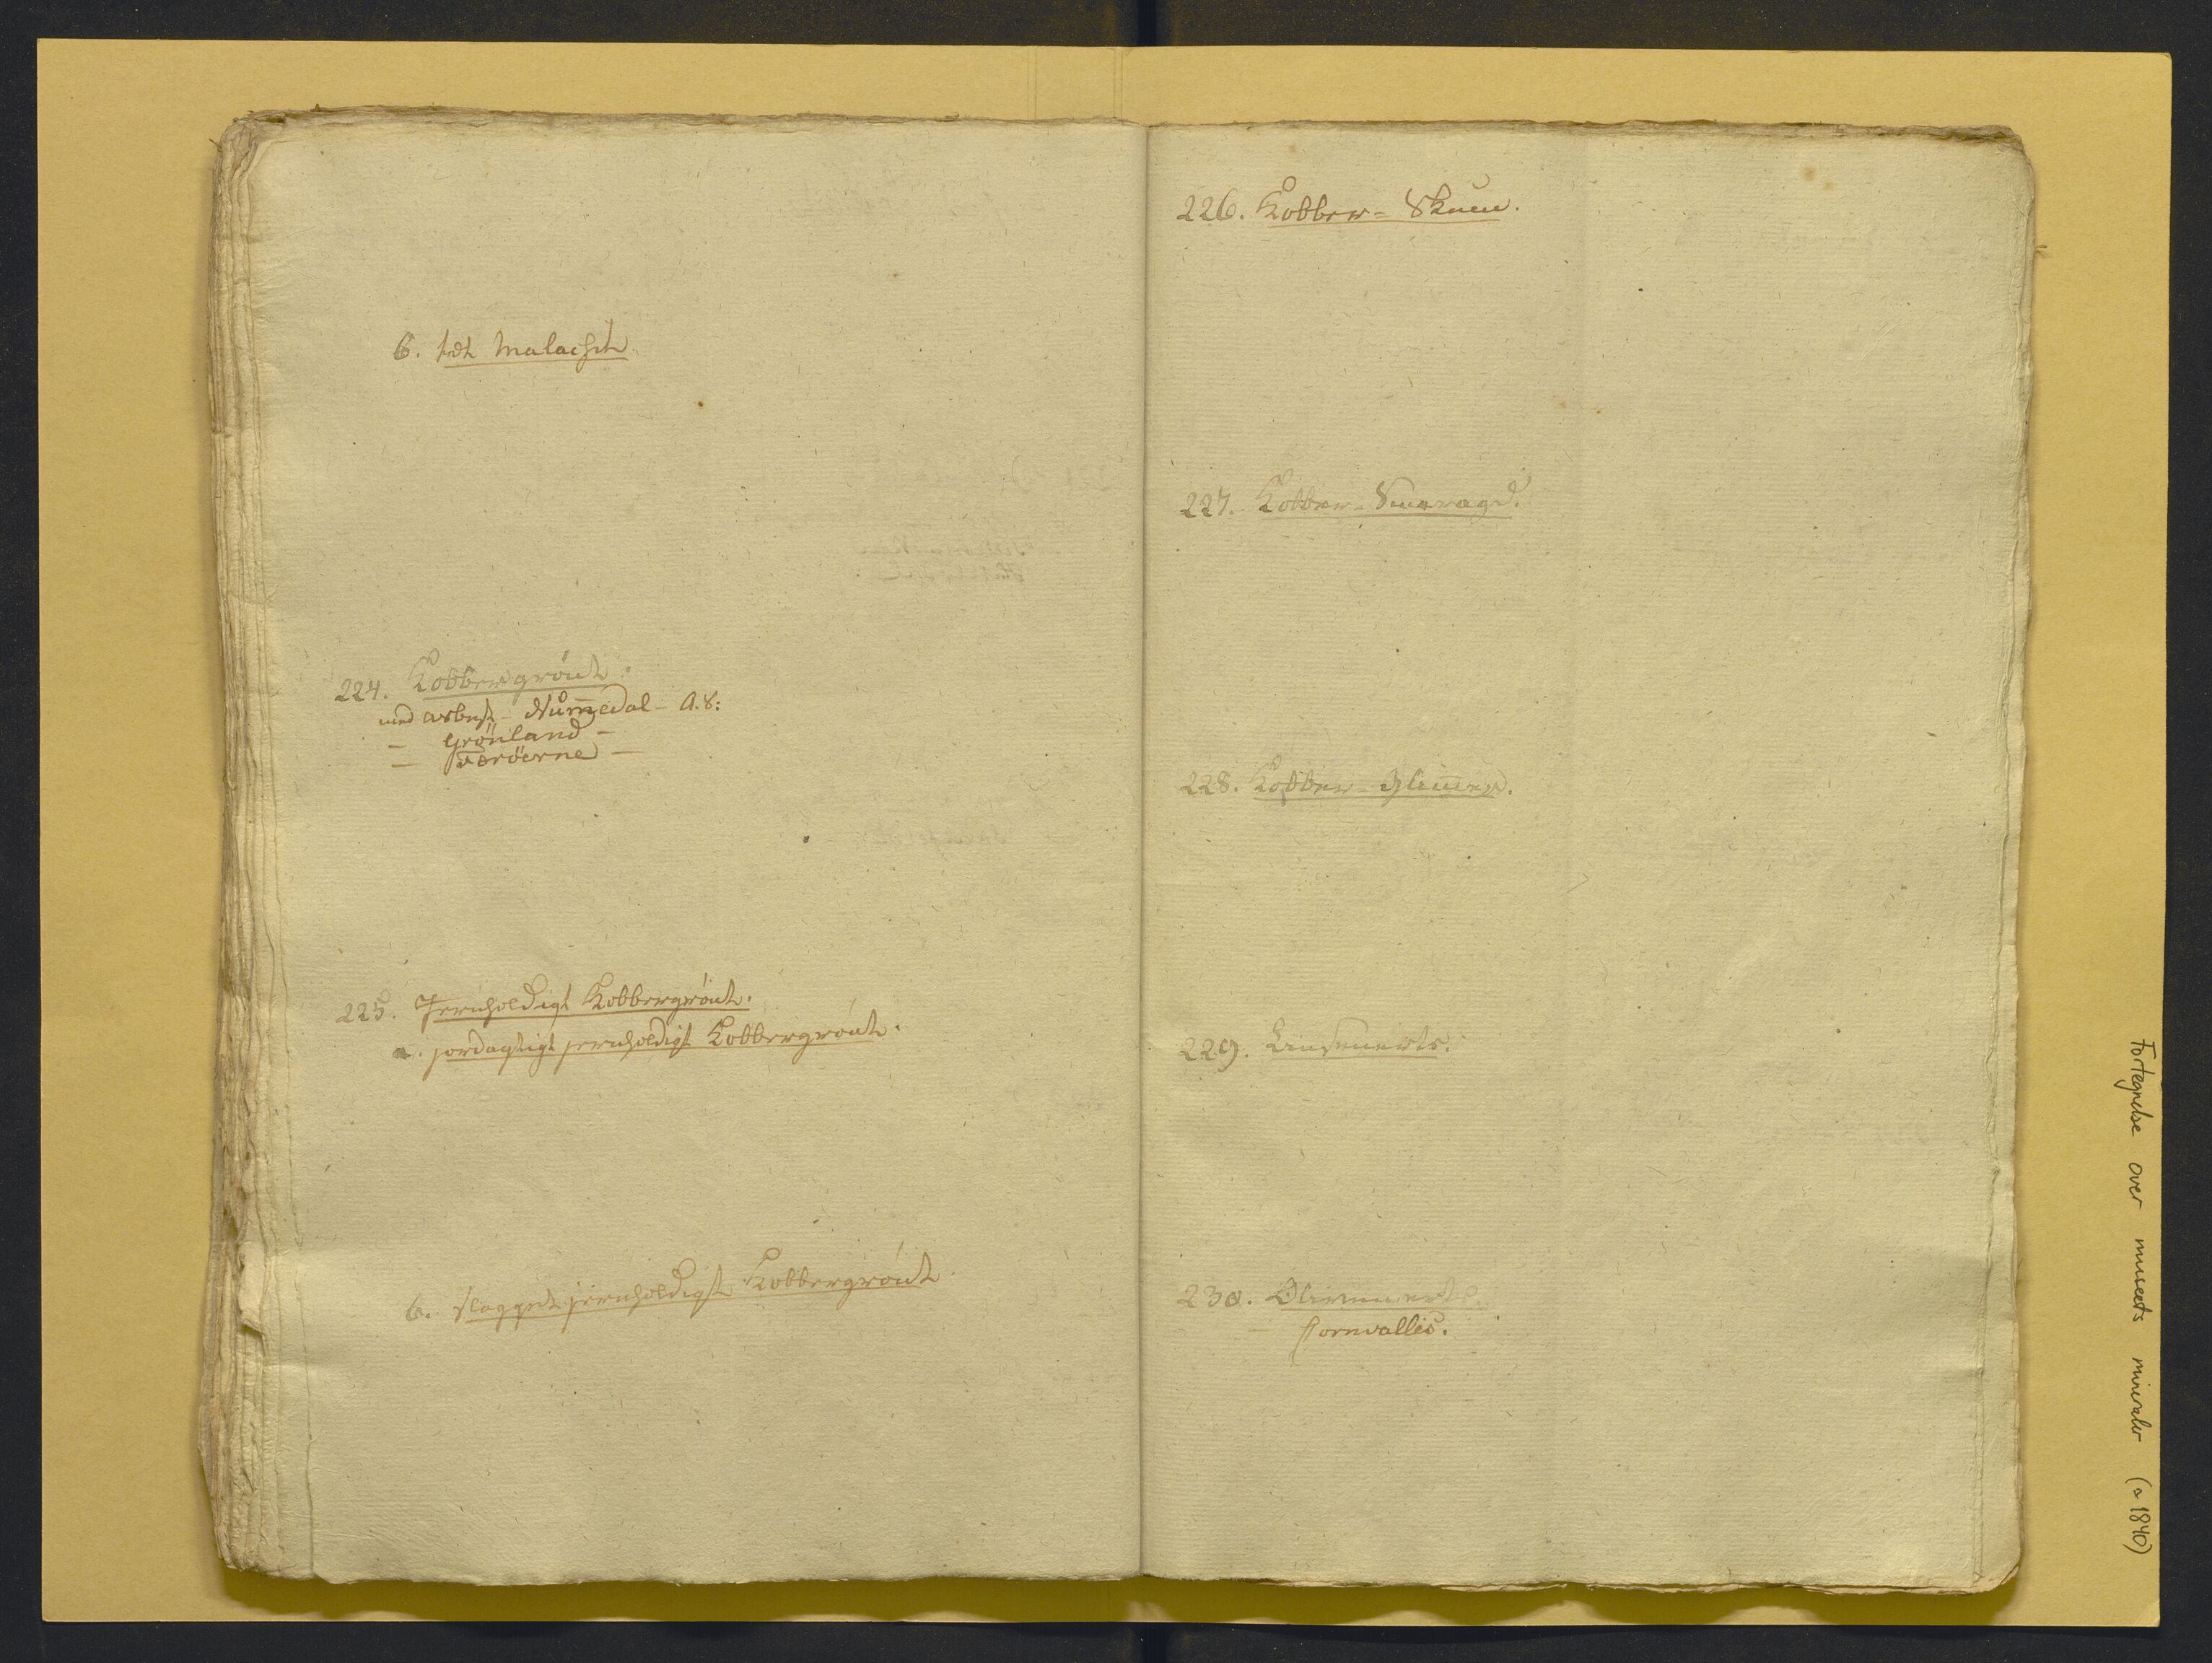 b. tæt Malachit
224. Kobbergrönt.
med Asbest - Nummedal - A.8:
— Grönland —
— Færöerne —
225. Jernholdigt Kobbergrönt.
a. jordagtigt jernholdigt Kobbergrönt.
b. slagget jernholdigt Kobbergrönt
226. Kobber-Skum.
227. Kobber-Smaragd.
228. Kobber-Glimmer.
229. Linsenerts.
230. Olivenerts.
— Cornvallis.
Fortegnelse over museets mineraler (ca 1840)